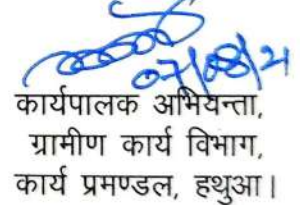 07/08/21
कार्यपालक अभियन्ता,
ग्रामीण कार्य विभाग,
कार्य प्रमण्डल, हथुआ।